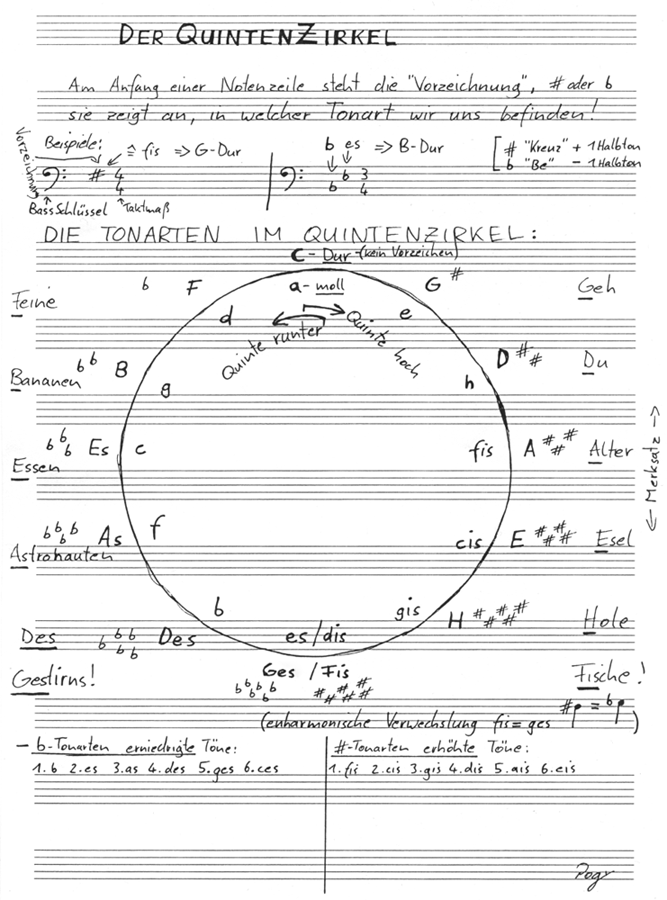 DER QUINTENZIRKEL
Am Anfang einer Notenzeile steht die "Vorzeichnung", # oder b
sie zeigt an, in welcher Tonart wir uns befinden!
Vorzeichnung
Beispiele:
≙ fis => G-Dur
b es => B-Dur
# "Kreuz" + 1 Halbton
b "Be" - 1 Halbton
# 4 4
b b 3 4
BassSchlüssel
Taktmaß
DIE TONARTEN IM QUINTENZIRKEL:
C - Dur - (kein Vorzeichen)
a - moll
Feine b F d e G # Geh
Quinte runter Quinte hoch
Bananen bb B g h D ## Du
Essen bbb Es c fis A ### Alter
<- Merksatz ->
Astronauten bbbb As f cis E #### Esel
Des bbbbb Des b es/dis gis H ##### Hole
Gestirns! Ges / Fis Fische!
bbbbbb ######
(enharmonische Verwechslung fis = ges # = b)
- b-Tonarten erniedrigte Töne:
1. b 2. es 3. as 4. des 5. ges 6. ces
#-Tonarten erhöhte Töne:
1. fis 2. cis 3. gis 4. dis 5. ais 6. eis